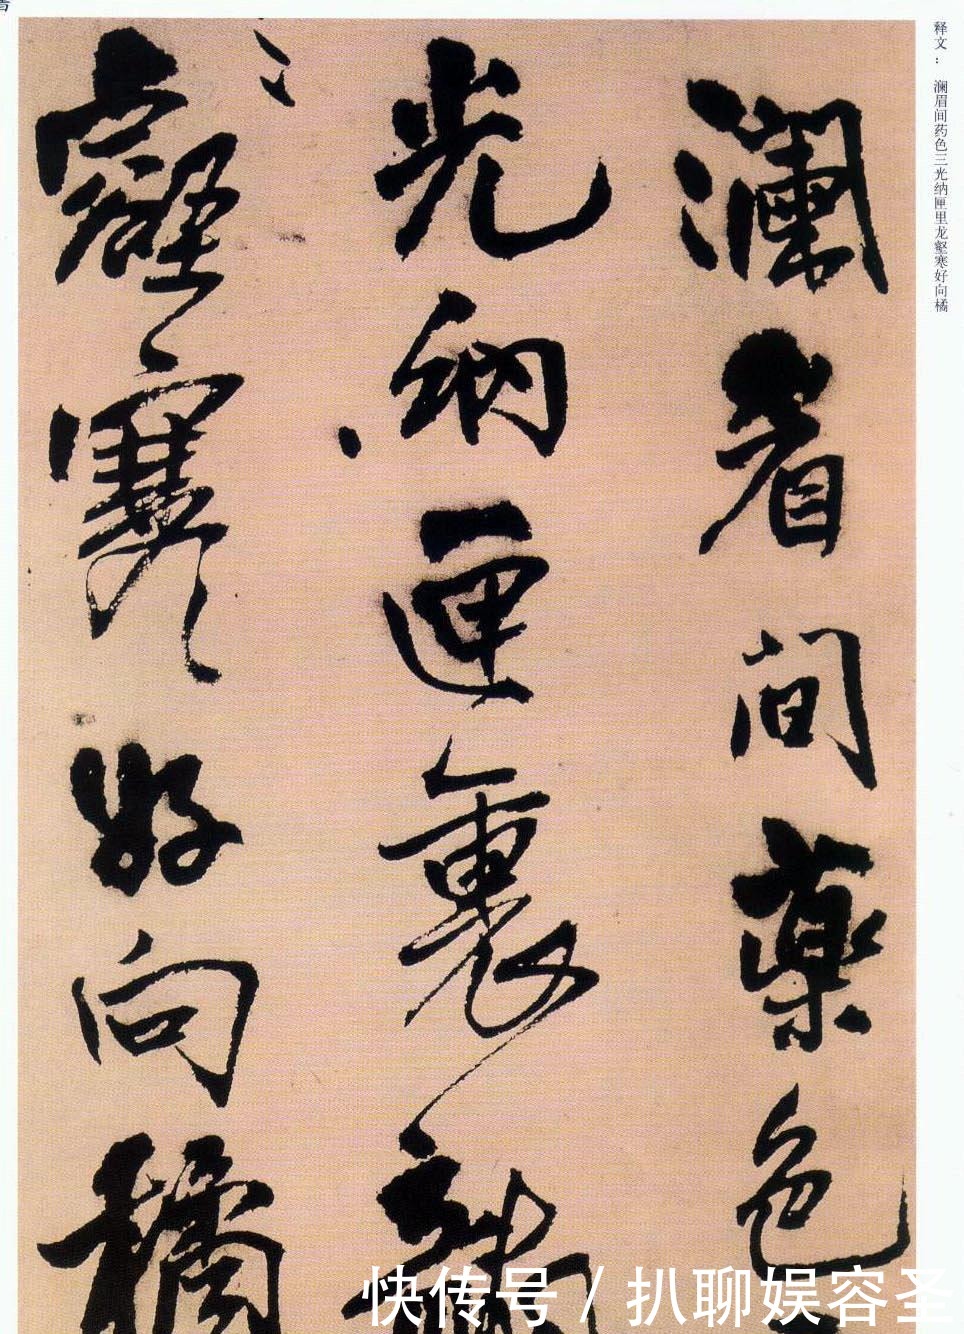 释文：　澜眉间药色三光纳匣里龙壑寒好向橘
澜眉间藥色
光纳匣裏龍
壑寒好向橘
快传号 / 扒聊娱容圣